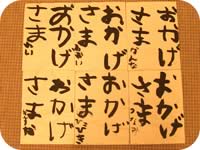 おかげ
さま
おかげ
さま
おかげ
さま
おかげ
さま
おかげ
さま
ひびき
おかげ
さま